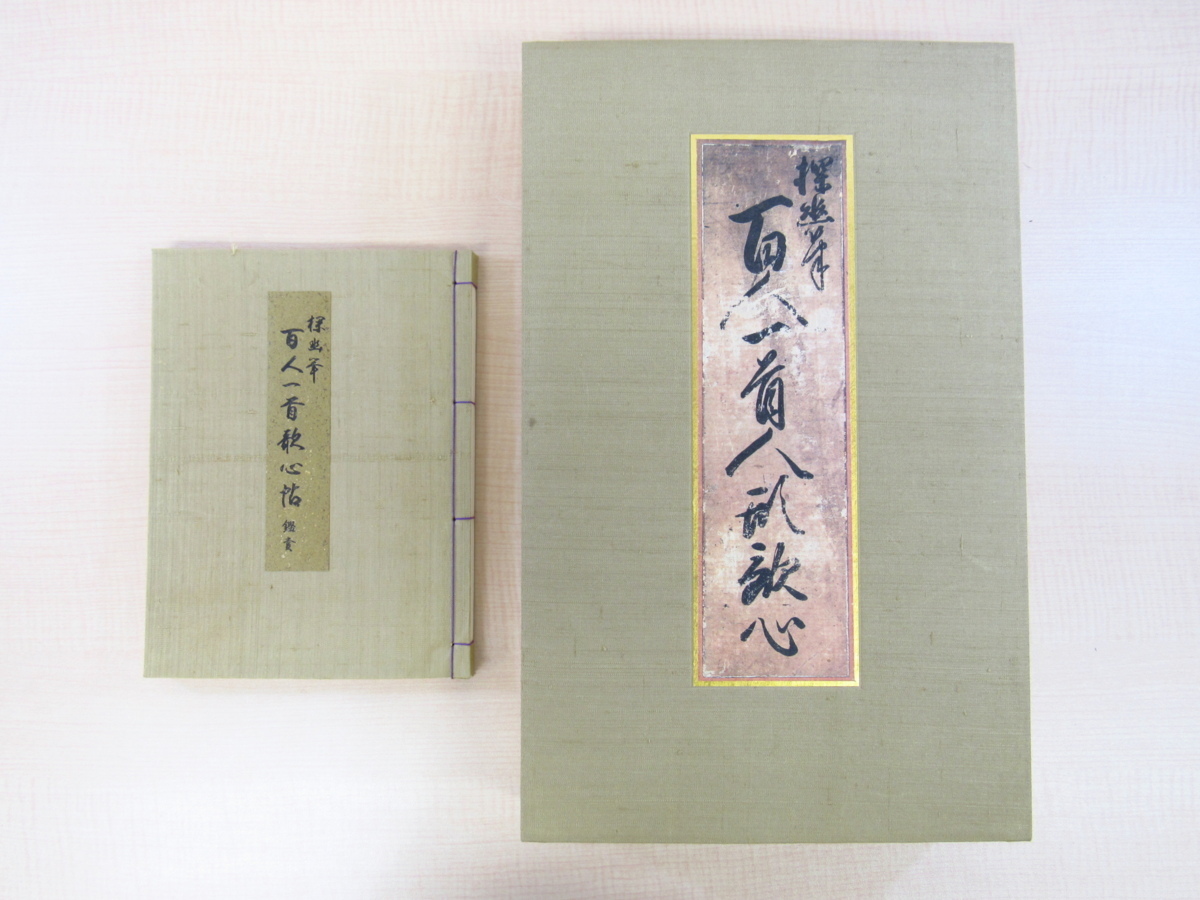 探幽筆
百人一首歌心帖 鑑賞
探幽筆
百人一首人形歌心